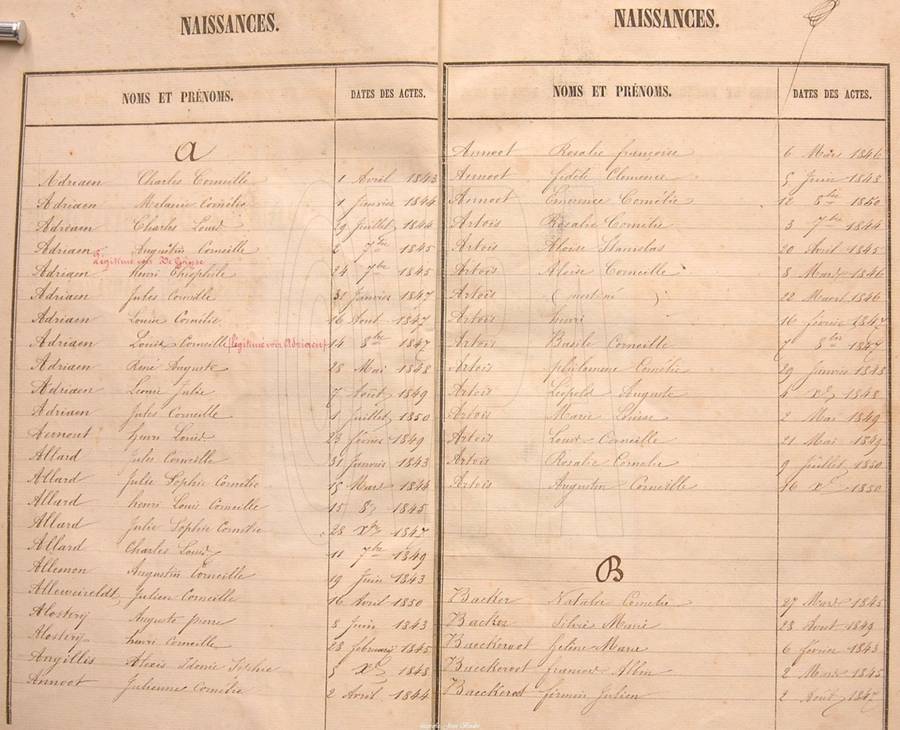 NAISSANCES.
NOMS ET PRÉNOMS. DATES DES ACTES.
A
Adriaen Charles Corneille 1 Avril 1843
Adriaen Melanie Cornélie 1 Janvier 1844
Adriaen Charles Louis 29 Juillet 1844
Adriaen Augustin Corneille 2 7bre 1845
légitimé voir De Gryse
Adriaen henri Théophile 24 7bre 1845
Adriaen Jules Corneille 31 Janvier 1847
Adriaen Louise Cornélie 16 Août 1847
Adriaen Louis Corneille (légitimé voir Adriaen) 14 8bre 1847
Adriaen René Auguste 28 Mai 1848
Adriaen Leonie Julie 7 Août 1849
Adriaen Jules Corneille 1 Juillet 1850
Aernout henri Louis 23 février 1849
Allard Jules Corneille 31 Janvier 1843
Allard Julie Sophie Cornélie 15 Mars 1844
Allard henri Louis Corneille 15 1845
Allard Julie Sophie Cornélie 28 Xbre 1847
Allard Charles Louis 11 7bre 1849
Allemon Augustin Corneille 19 Juin 1843
Alleweireldt Julien Corneille 16 Avril 1850
Alostery Auguste pierre 8 Juin 1843
Alostery henri Corneille 28 1845
Angillis Alexis Idonie Sophie 5 1848
Annoot Julienne Cornélie 2 Avril 1844
NAISSANCES.
NOMS ET PRÉNOMS. DATES DES ACTES.
Annoot Rosalie françoise 6 Mars 1846
Annoot fidèle Clemence 5 Juin 1848
Annoot Emerence Cornélie 12 8bre 1850
Artois Rosalie Cornélie 3 7bre 1844
Artois Aloise Stanislas 20 Avril 1845
Artois Aloise Corneille 8 Mars 1846
Artois 22 Mars 1846
Artois henri 16 février 1847
Artois Basile Corneille 7 8bre 1847
Artois philomene Cornélie 29 Janvier 1848
Artois Léopold Auguste 4 1848
Artois Marie Louise 2 Mai 1849
Artois Louis Corneille 21 Mai 1849
Artois Rosalie Cornelie 9 Juillet 1850
Artois Augustin Corneille 16 1850
B
Backer Natalie Cornelie 27 Mars 1845
Backer Silvie Marie 28 Août 1849
Baeckeroot Marie 6 février 1843
Baeckeroot francois Albin 2 Mars 1845
Baeckerod firmin Julien 2 Août 1847